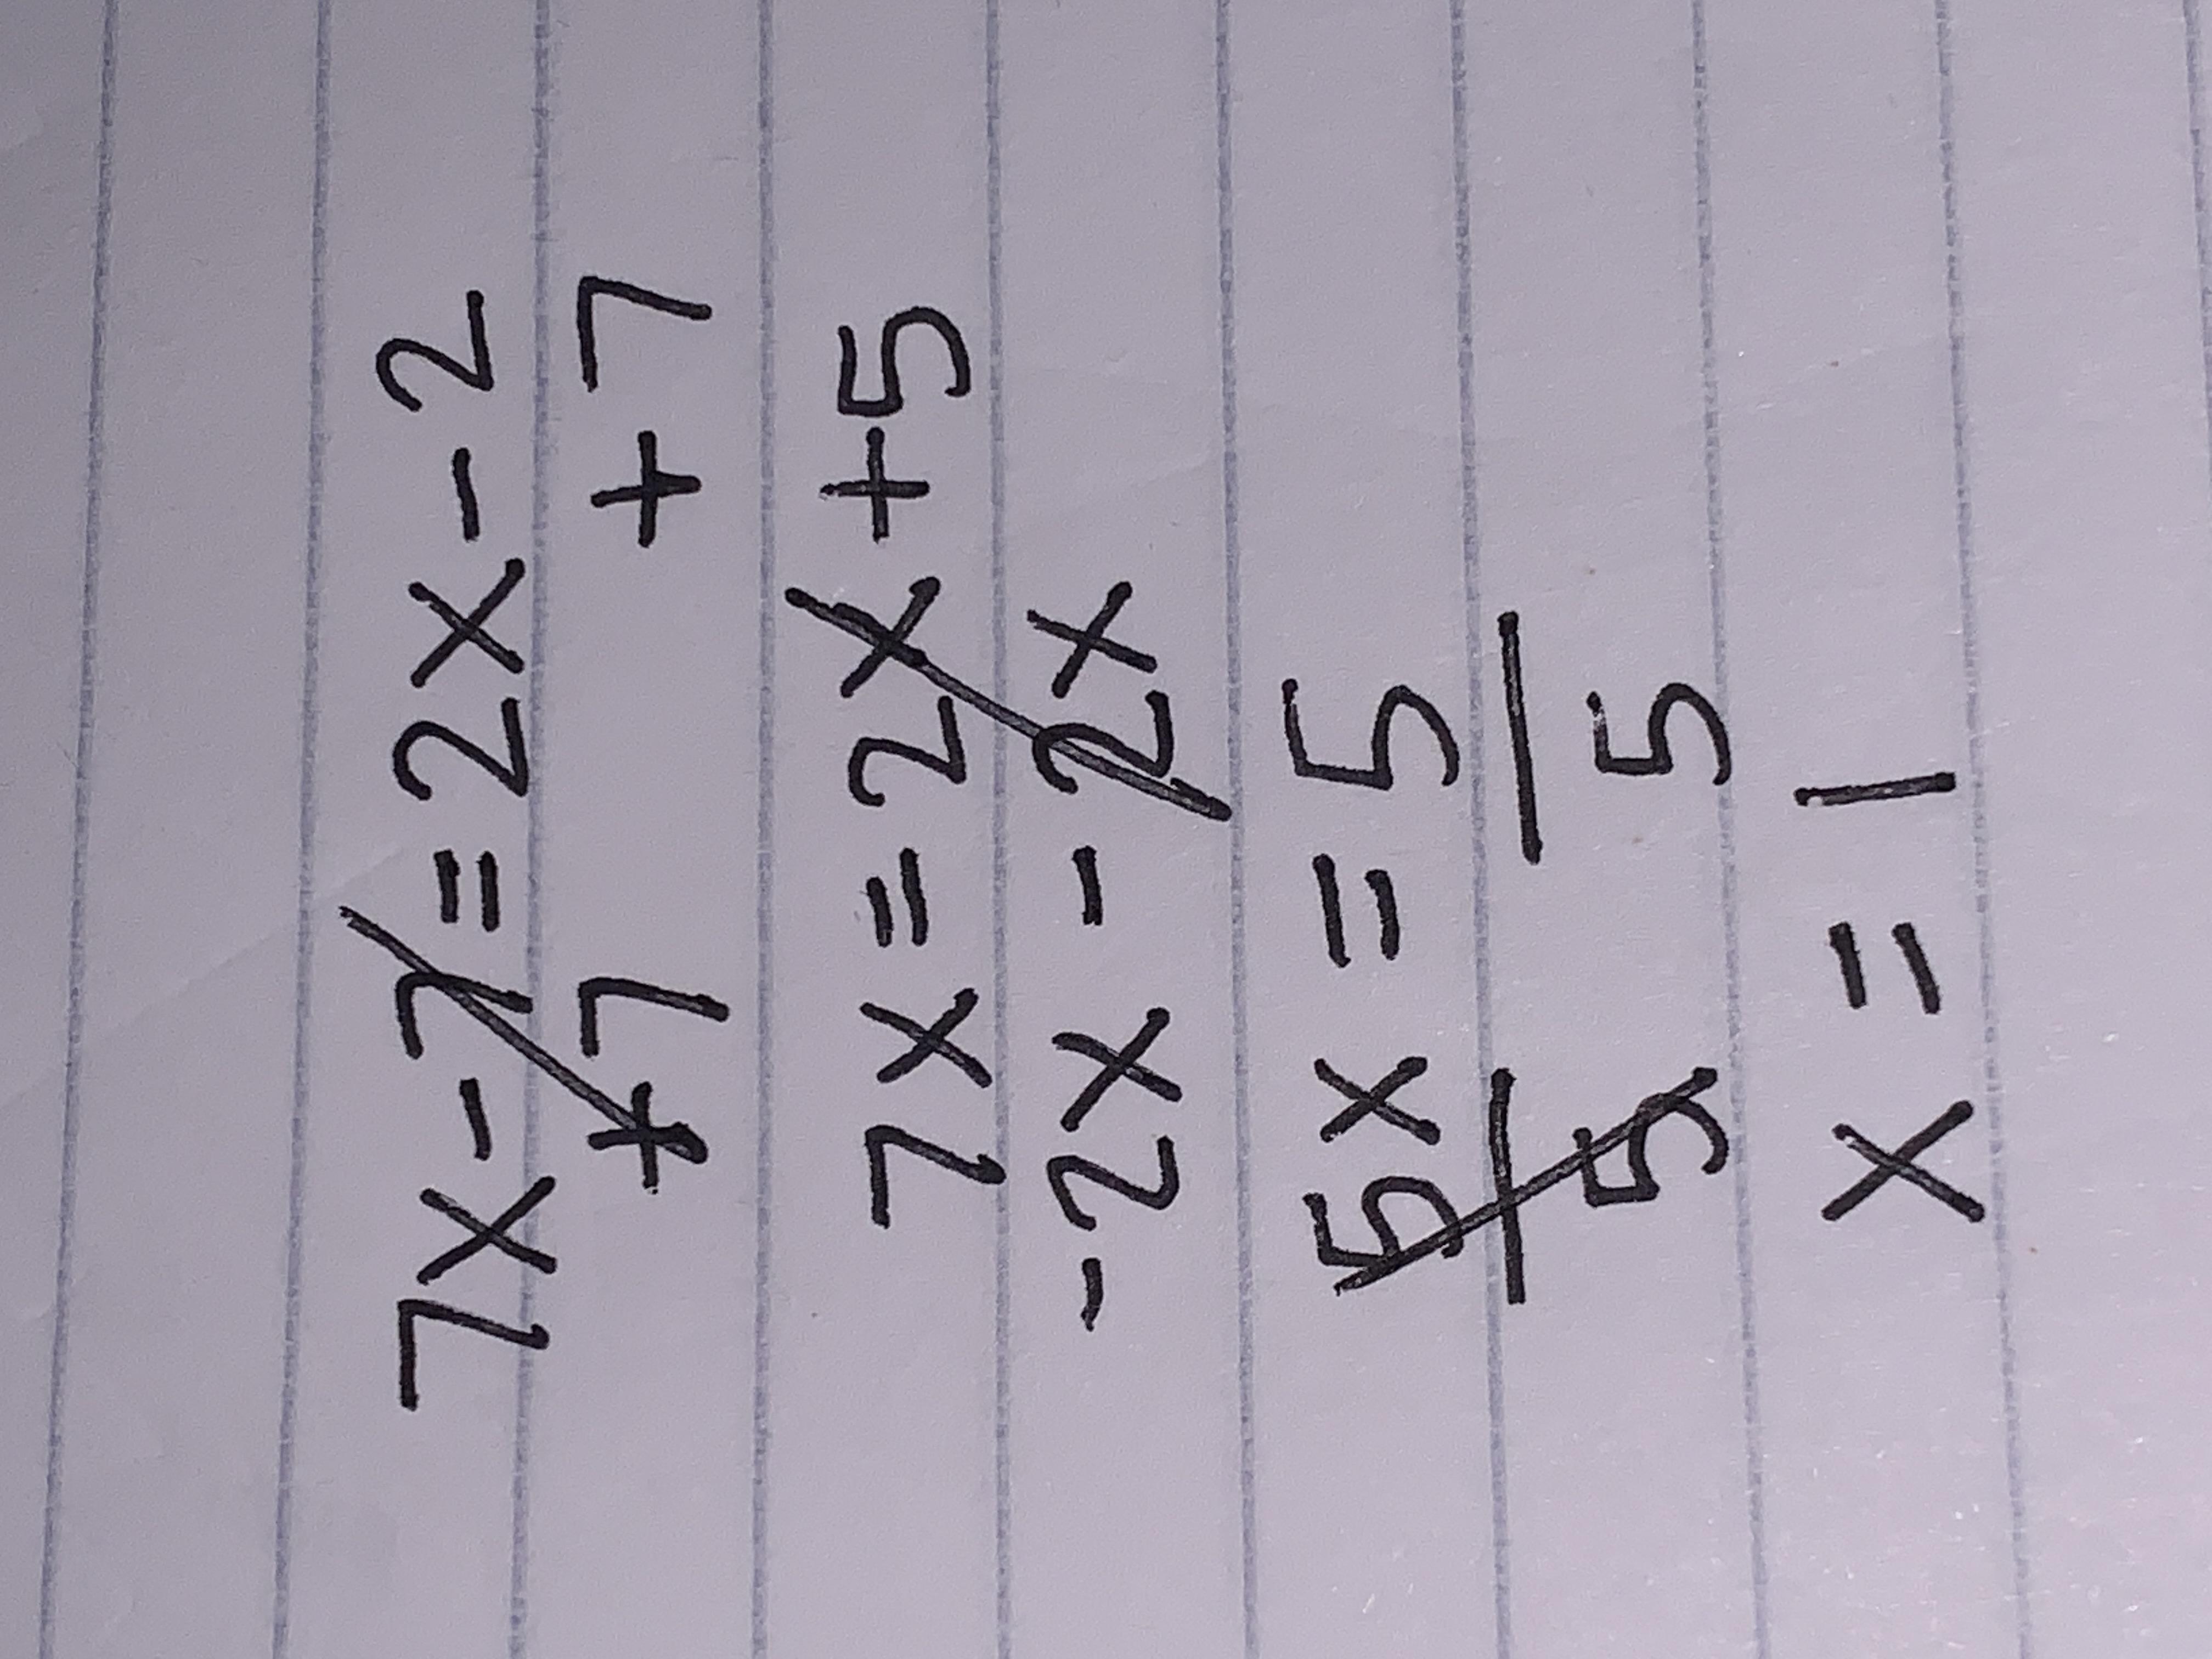 7x - 7 = 2x - 2
+ 7 + 7
7x = 2x + 5
- 2x - 2x
5x = 5
5 5
x = 1